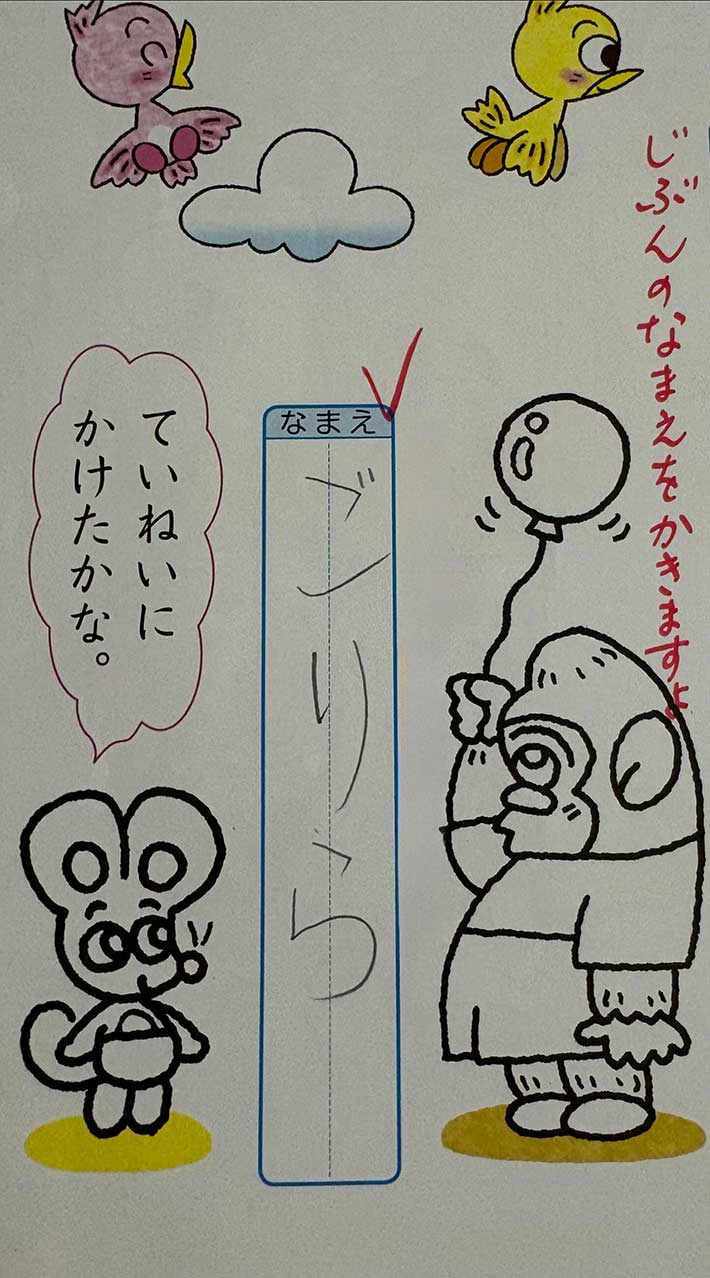 じぶんのなまえをかきますよ
なまえ
ごりら
ていねいに
かけたかな。